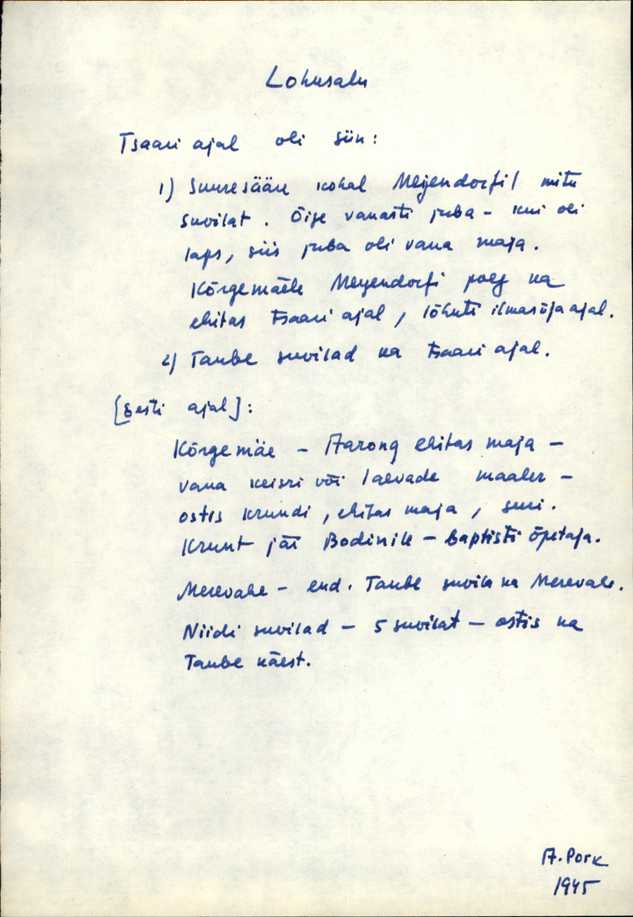 Lohusalu
Tsaari ajal oli siin:
1) Suuresääre kohal Meijendorfil mitu
suvilat. Õige vanasti juba - kui oli
laps, siis juba oli vana maja.
Kõrgemäele Meyendorfi poeg ka
ehitas tsaari ajal, lõhuti ilmasõja ajal.
2) Taube suvilad ka tsaari ajal.
[Eesti ajal]:
Kõrgemäe - Aarong ehitas maja -
vana keisri või laevade maaler -
ostis krundi, ehitas maja, suri.
Krunt jäi Bodinile - baptisti õpetaja.
Merevahe - end. Taube suvila ka Merevahe.
Niidi suvilad - 5 suvilat - ostis ka
Taube käest.
A. Pork
1945